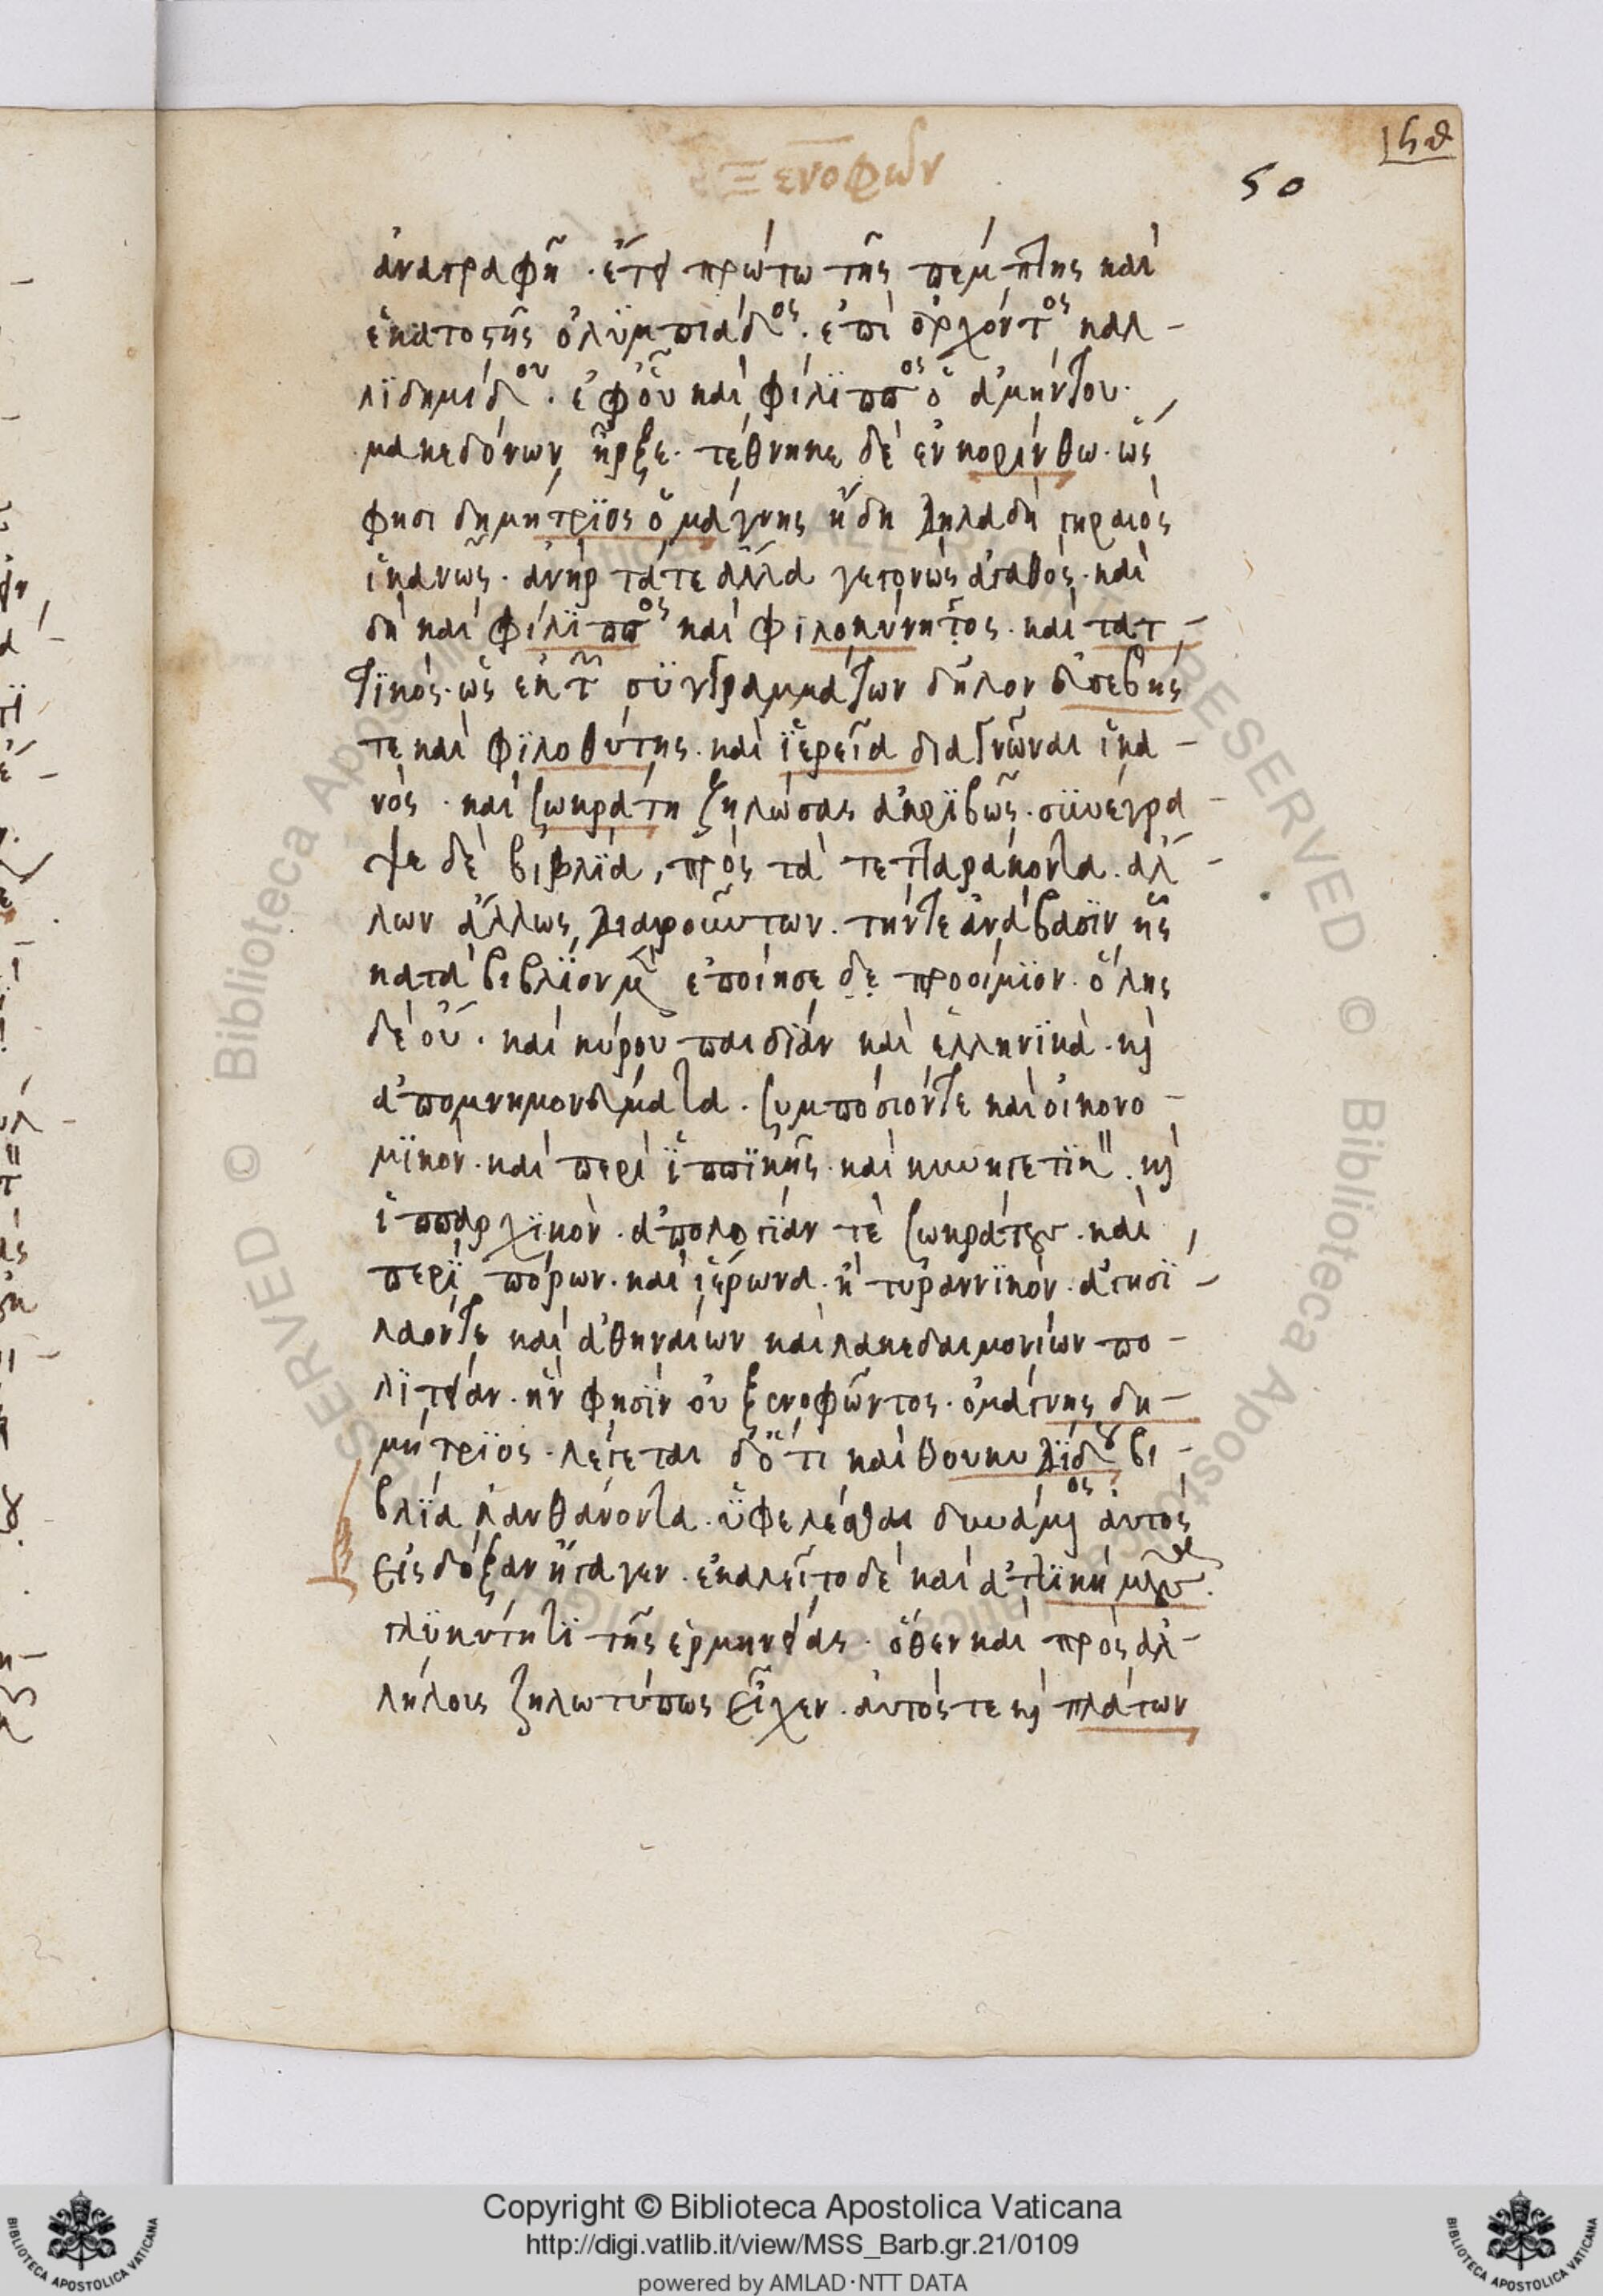 Ξενοφῶν
50
ἀναγραφῆ · ἔτει πρώτω τῆς πέμπτης καὶ
ἑκατοστῆς ὀλϋμπιάδος · ἐπὶ ἄρχόντος καλ-
λϊδημίδου · ἐφ' οὗ καὶ φίλϊππος ὁ ἀμήντου ·
μακεδόνων ἦρξε · τέθνηκε δὲ ἐν κορίνθω · ὥς
φησι δημήτρϊος ὁ μάγνης ἤδη δηλαδὴ γηραιὸς
ἱκανῶς · ἀνὴρ τά τε ἄλλα γεγονὼς ἀγαθὸς · καὶ
δὴ καὶ φίλϊππος καὶ φιλοκύνηγος · καὶ τακ-
τϊκός · ὡς ἐκ τῶν σϋγγραμμάτων δῆλον εὐσεβής
τε καὶ φϊλοθύτης · καὶ ϊερεῖα διαγνῶναι ἱκα-
νὸς · καὶ σωκράτη ζηλώσας ἀκρϊβῶς · σϋνέγρα-
ψε δὲ βιβλϊα, πρὸς τὰ τετταράκοντα · ἀλ-
λων ἄλλως διαιρούντων · τήν τε ἀνάβασϊν ἧς
κατὰ βιβλΐον μὲν ἐποίησε δε προοίμϊον · ὅλης
δὲ οὔ · καὶ κύρου παιδϊὰν καὶ ἑλληνϊκὰ · καὶ
ἀπομνημονεύματα · συμπόσιόν τε καὶ οἰκονο-
μϊκὸν · καὶ περὶ ϊππϊκῆς · καὶ κυνηγετϊκὸν · καὶ
ἱππαρχϊκὸν · ἀπολογϊάν τε σωκράτους · καὶ
περὶ πόρων · καὶ ϊέρωνα · ἢ τυραννϊκόν · ἀγησϊ-
λαόν τε καὶ ἀθηναίων καὶ λακεδαιμονίων πο-
λϊτείαν · ἥν φησϊν οὐ ξενοφῶντος · ὁ μάγνης δη-
μήτρϊος · λέγεται δ' ὅτι καὶ θουκυδϊδου βι-
βλϊα λανθάνοντα · ὑφελέσθαι δυνάμενος αὐτὸς
εἰς δόξαν ἤγαγεν · ἐκαλεῖτο δὲ καὶ ἀττϊκὴ μοῦσα ·
γλϋκύτητϊ τῆς ἑρμηνείας · ὅθεν καὶ πρὸς ἀλ-
λήλους ζηλωτύπως εἶχεν · αὐτός τε καὶ πλάτων
Copyright © Biblioteca Apostolica Vaticana
http://digi.vatlib.it/view/MSS_Barb.gr.21/0109
powered by AMLAD·NTT DATA